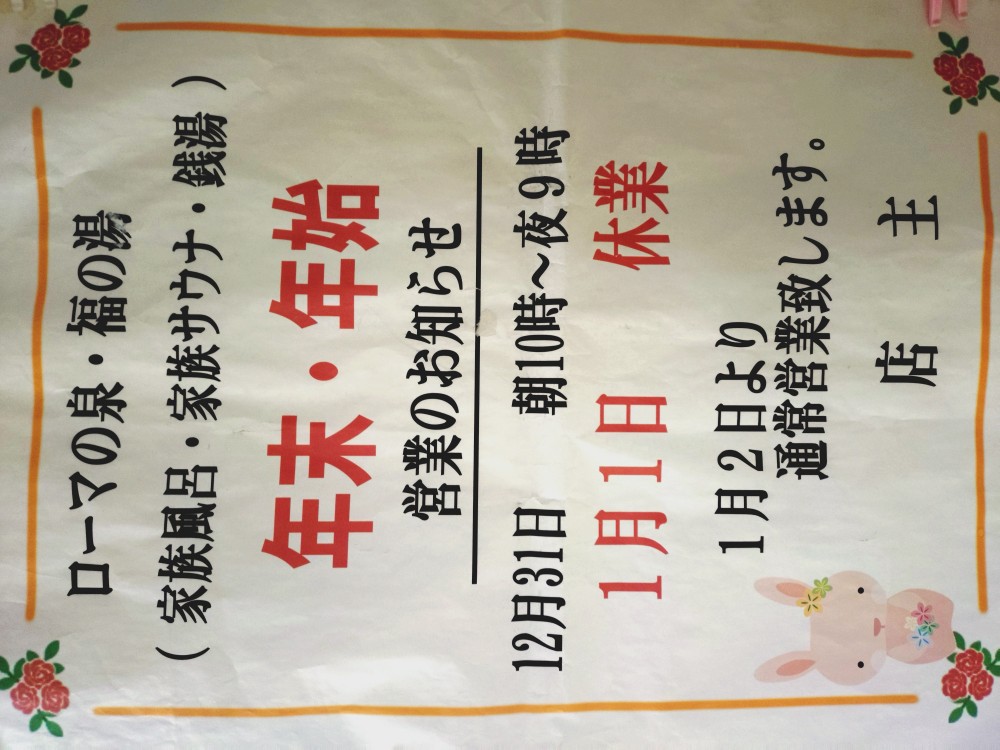 ローマの泉・福の湯
（家族風呂・家族サウナ・銭湯）
年末・年始
営業のお知らせ
12月31日　朝10時～夜9時
1月1日　休業
1月2日より
通常営業致します。
店　主